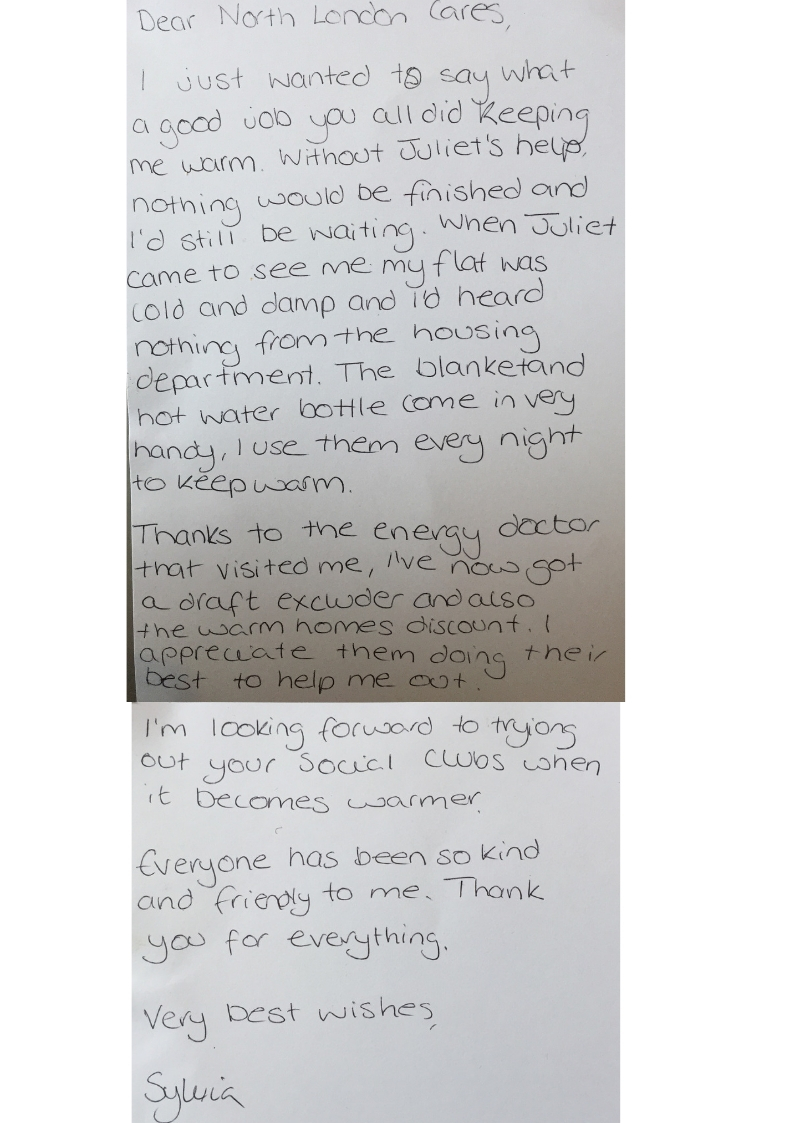 Dear North London Cares,
I just wanted to say what
a good job you all did keeping
me warm. Without Juliet's help,
nothing would be finished and
I'd still be waiting. When Juliet
came to see me my flat was
cold and damp and i'd heard
nothing from the housing
department. The blanket and
hot water bottle come in very
handy, I use them every night
to keep warm.
Thanks to the energy doctor
that visited me, I've now got
a draft excluder and also
the warm homes discount. I
appreciate them doing their
best to help me out.
I'm looking forward to tryiong
out your social clubs when
it becomes warmer.
Everyone has been so kind
and friendly to me. Thank
you for everything.
Very best wishes,
Sylvia